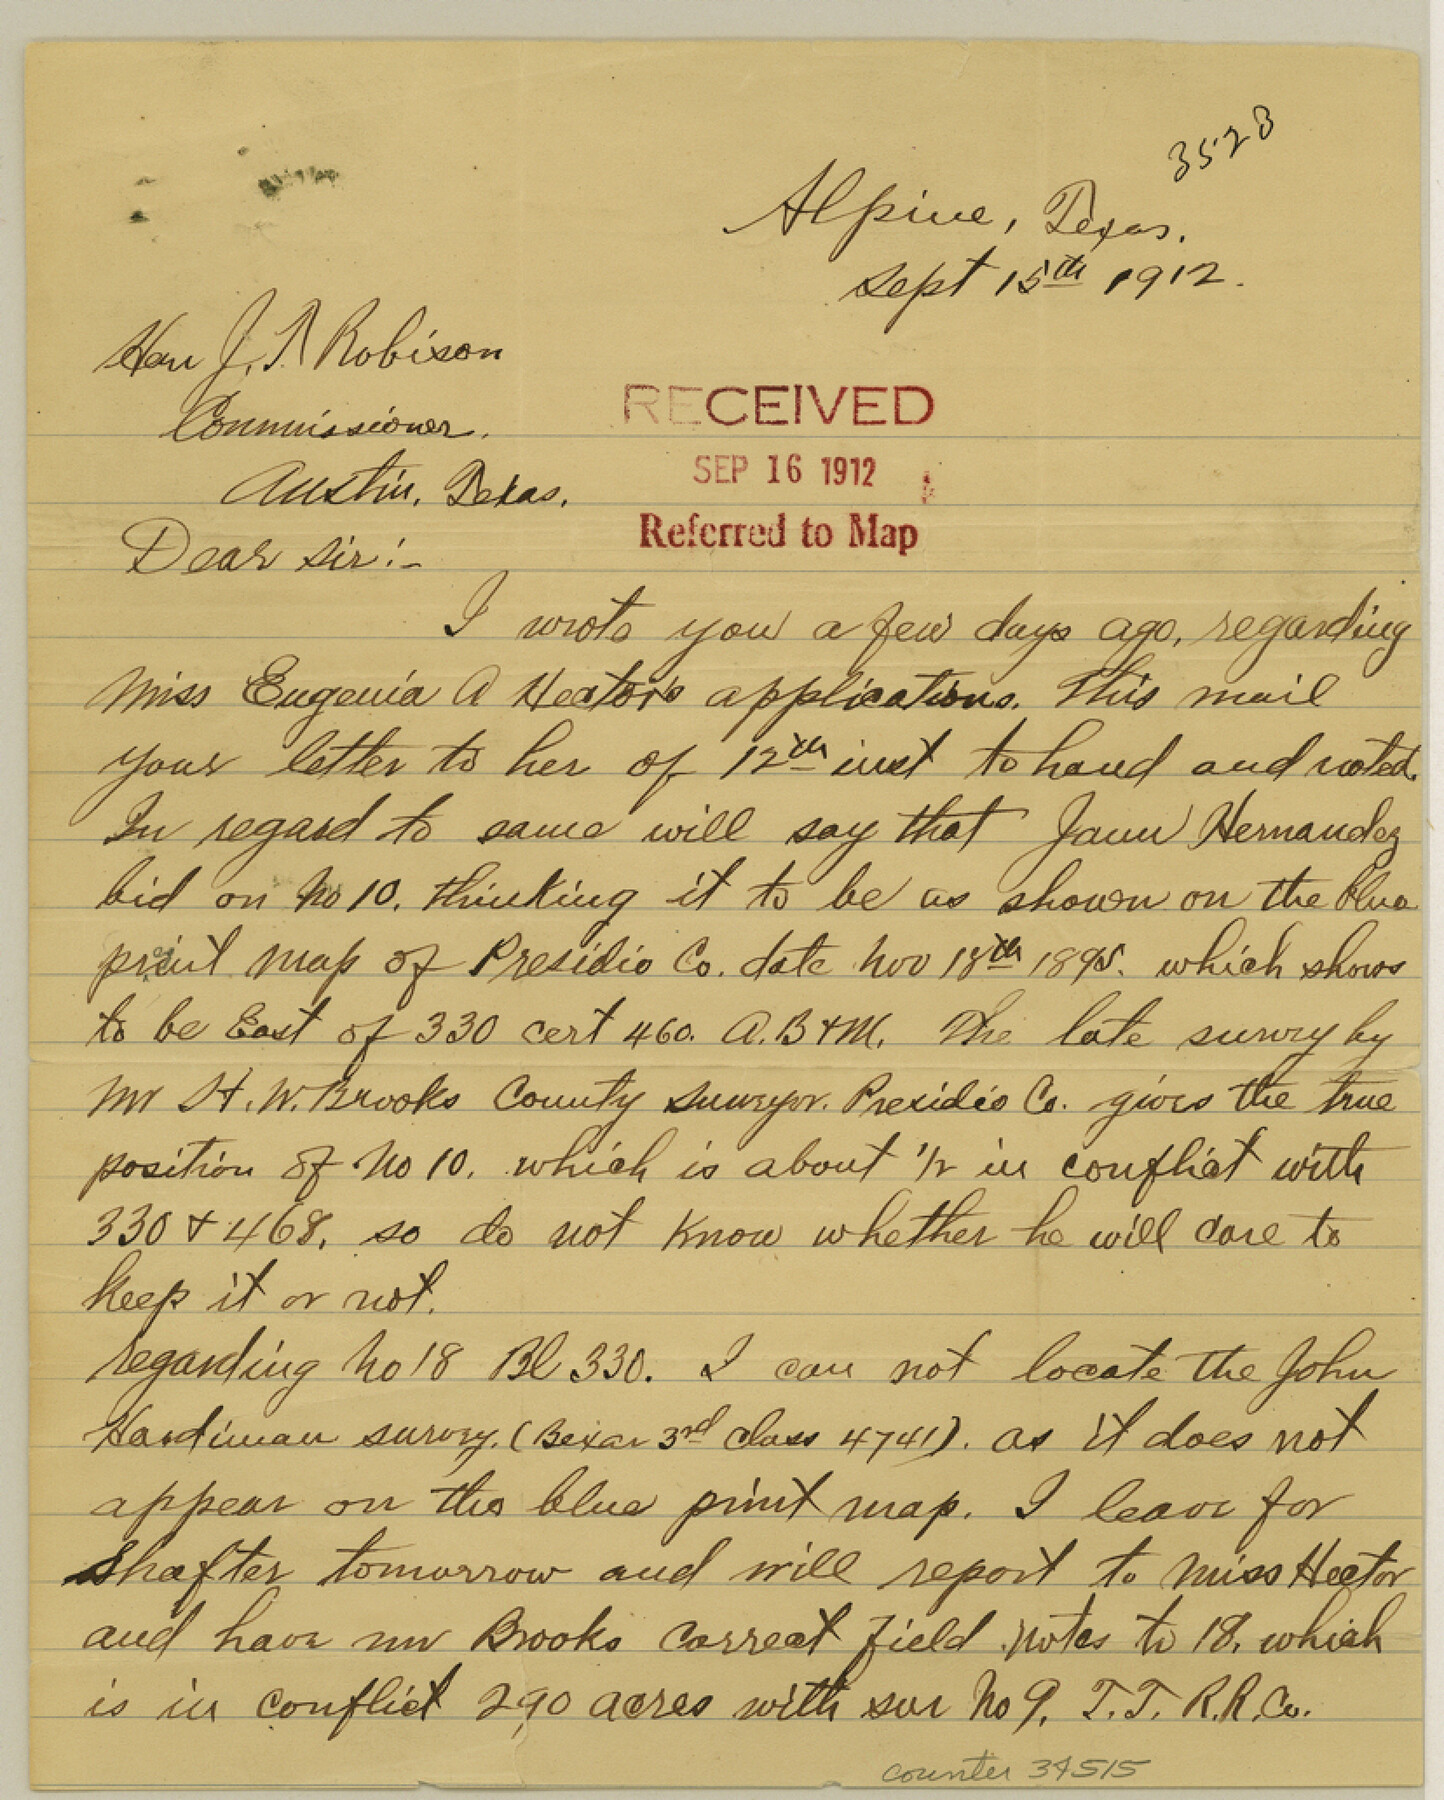 3528
Alpine, Texas.
Sept 15th 1912.
Hon J. T. Robison
Commissioner.
Austin, Texas.
RECEIVED
SEP 16 1912
Referred to Map
Dear Sir:-
I wrote you a few days ago, regarding
Miss Eugenia A Hector's applications. This mail
your letter to her of 12th inst to hand and noted.
In regard to same will say that Juan Hernandez
bid on No 10. thinking it to be as shown on the blue
print map of Presidio Co. date Nov 18th 1895. which shows
to be East of 330 cert 460. A.B&M. The late survey by
Mr H. W. Brooks County Surveyor. Presidio Co. gives the true
position of No 10. which is about 1/2 in conflict with
330 & 468. so do not know whether he will care to
keep it or not.
regarding No 18 Bl 330. I can not locate the John
Hardiman survey. (Bexar 3rd class 4741). as it does not
appear on the blue print map. I leave for
Shafter tomorrow and will report to Miss Hector
and have Mr Brooks correct field notes to 18. which
is in conflict 290 acres with sur No 9. T.T. R.R.Co.
counter 34515